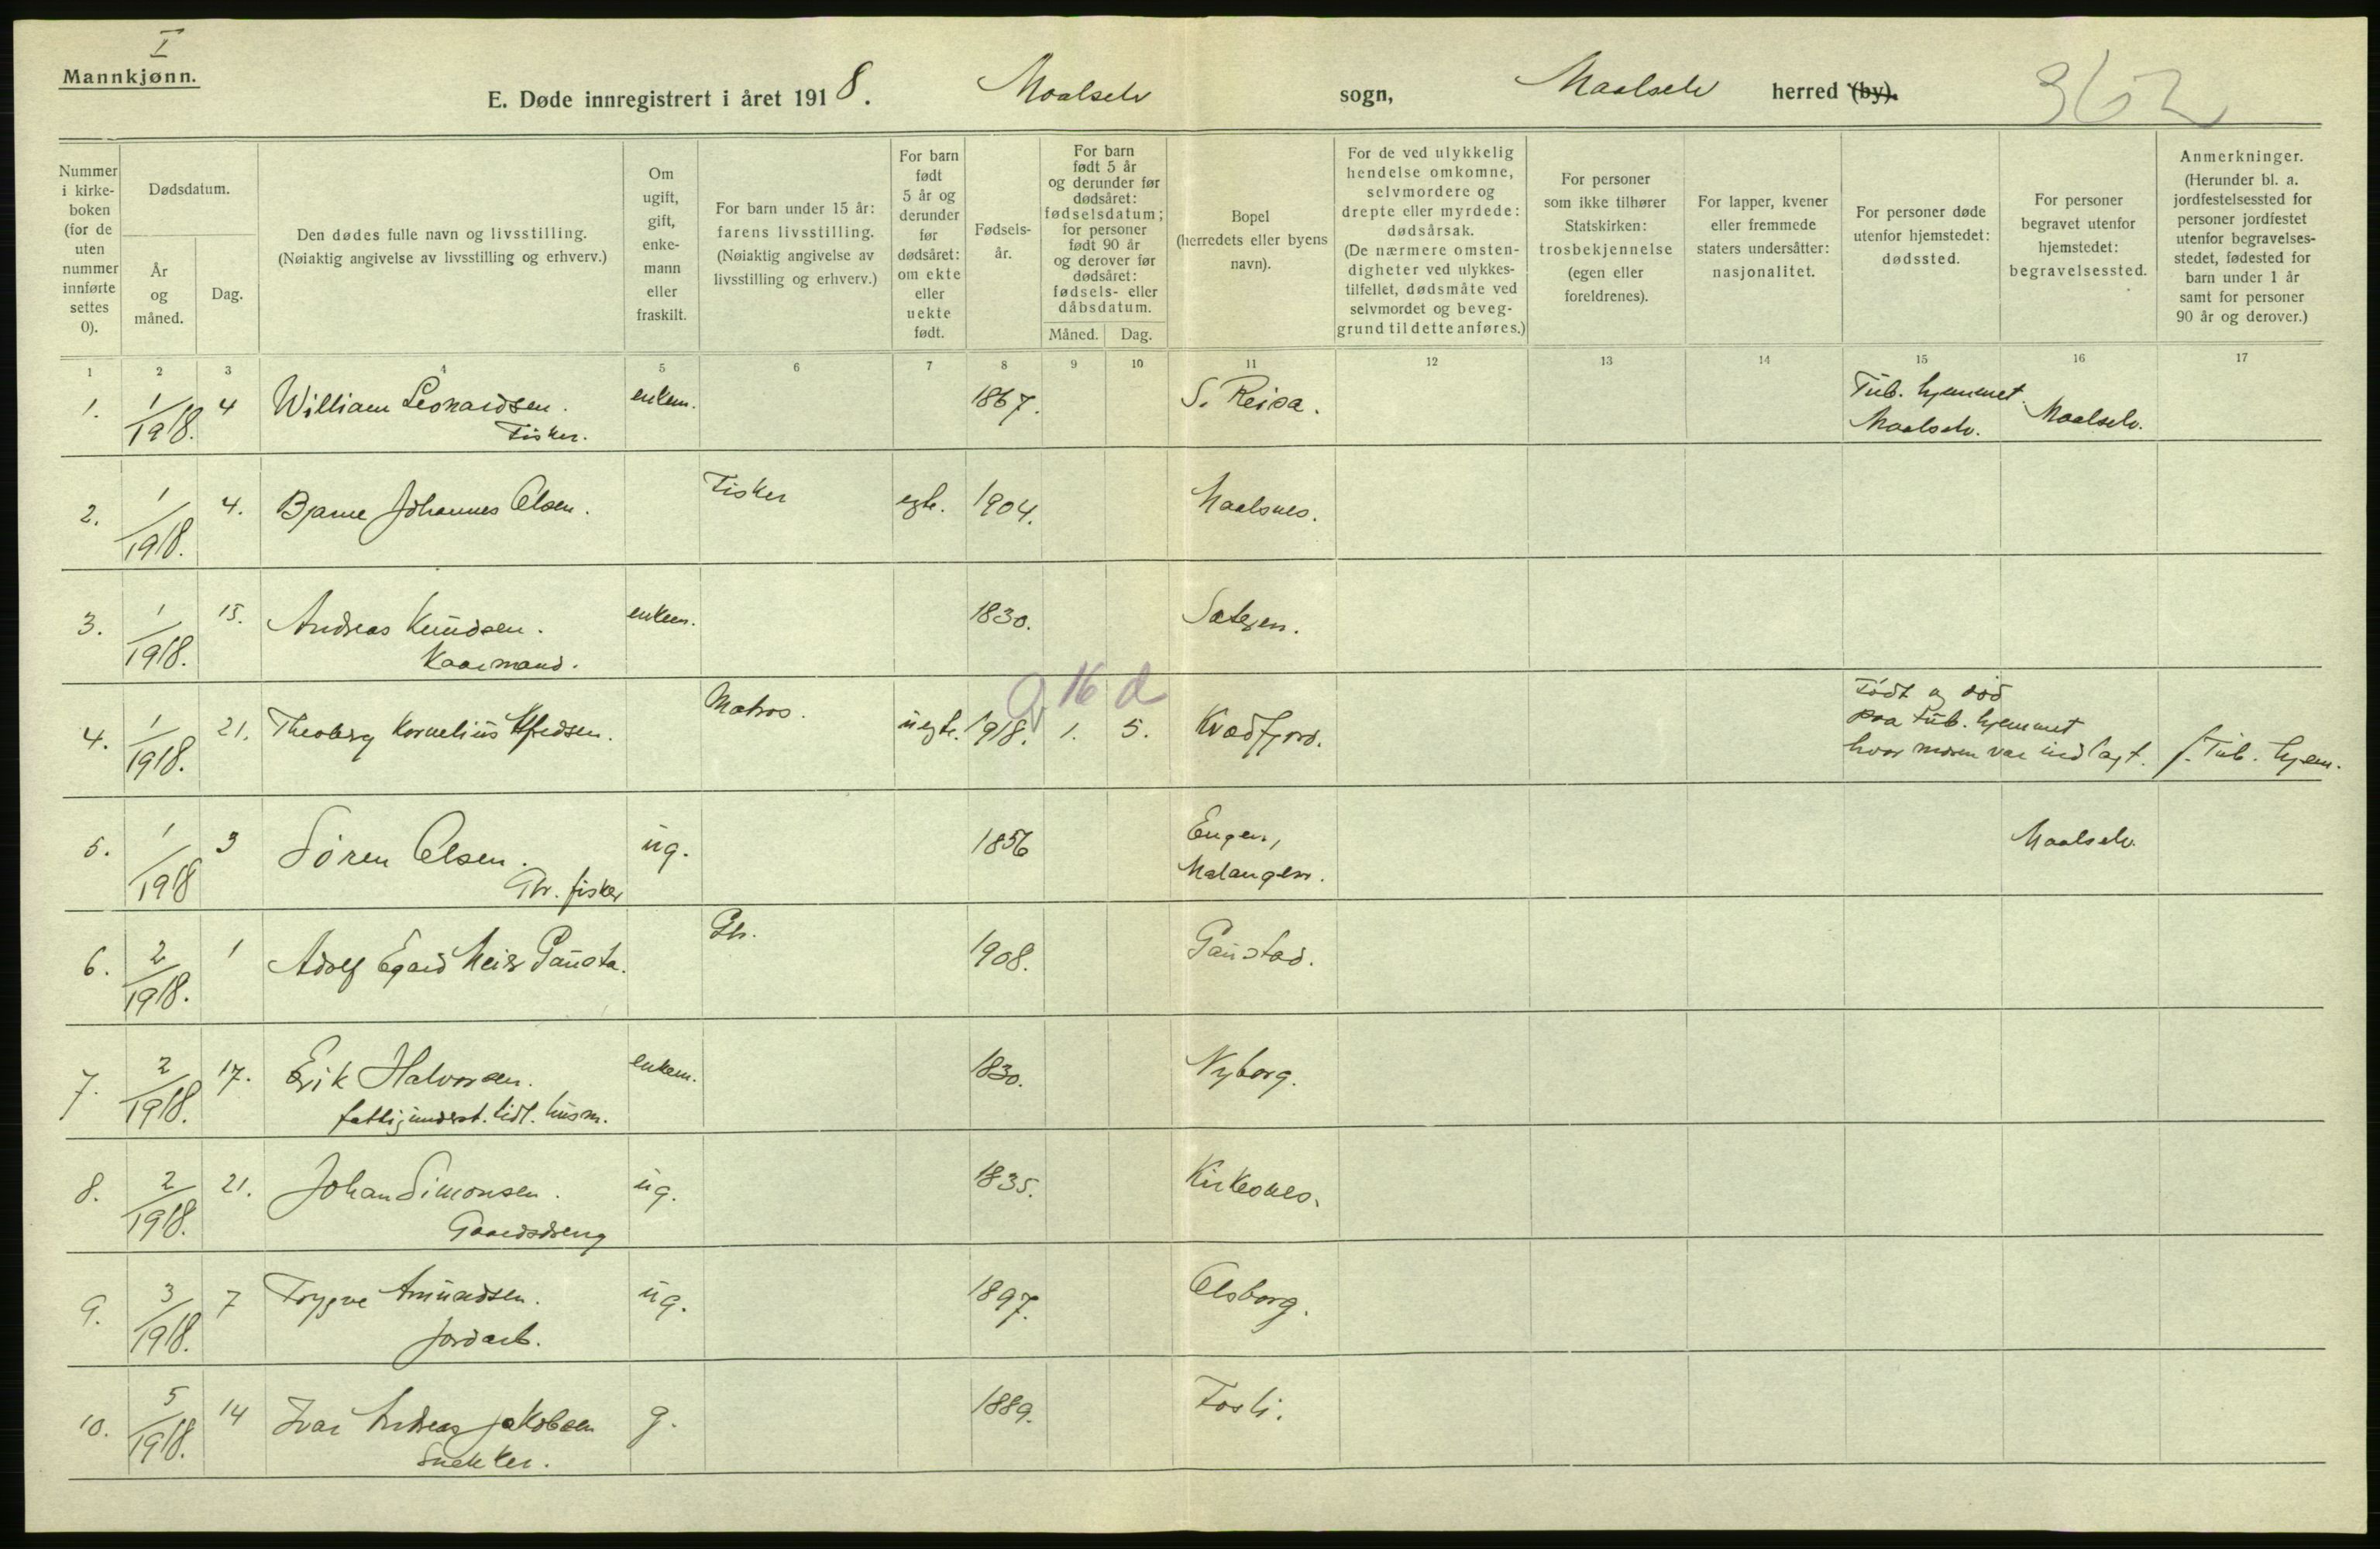 I
Mannkjønn.
E. Døde innregistrert i året 1918. Maalselv sogn, Maalselv herred (by). 362
Nummer i kirke-boken (for de uten nummer innførte settes 0).
Dødsdatum.
År og måned.
Dag.
Den dødes fulle navn og livsstilling.
(Nøiaktig angivelse av livsstilling og erhverv.)
Om ugift, gift, enke-mann eller fraskilt.
For barn under 15 år: farens livsstilling.
(Nøiaktig angivelse av livsstilling og erhverv.)
For barn født 5 år og derunder før dødsåret: om ekte eller uekte født.
Fødsels-år.
For barn født 5 år og derunder før dødsåret: fødselsdatum; for personer født 90 år og derover før dødsåret: fødsels- eller dåbsdatum.
Måned. Dag.
Bopel (herredets eller byens navn).
For de ved ulykkelig hendelse omkomne, selvmordere og drepte eller myrdede: dødsårsak.
(De nærmere omsten-digheter ved ulykkes-tilfellet, dødsmåte ved selvmordet og beveg-grund til dette anføres.)
For personer som ikke tilhører Statskirken: trosbekjennelse (egen eller foreldrenes).
For lapper, kvener eller fremmede staters undersåtter: nasjonalitet.
For personer døde utenfor hjemstedet: dødssted.
For personer begravet utenfor hjemstedet: begravelsessted.
Anmerkninger.
(Herunder bl. a. jordfestelsessted for personer jordfestet utenfor begravelses-stedet, fødested for barn under 1 år samt for personer 90 år og derover.)
1 2 3 4 5 6 7 8 9 10 11 12 13 14 15 16 17
1. 1/1918. 4 William Leonardsen. enkem. 1867. S. Reisa. Tub. hjemmet. Maalselv.
Fisker. Maalselv.
2. 1/1918. 4. Bjarne Johannes Olsen. Fisker egte. 1904. Maalsnes.
3. 1/1918. 15. Andreas Knudsen. enkem. 1830. Sætren.
Kaarmand.
0 16 d
4. 1/1918. 21. Theoberg Kornelius Alfredsen. Matros. uegte. 1918. 1. 5. Kvædfjord. Født og død
paa tub. hjemmet
hvor moren var indlagt. f. Tub. hjem.
5. 1/1918 3 Sören Olsen. ug. 1856 Engen, Maalselv.
Gbr. fisker Malangen.
6. 2/1918. 1 Adolf Egard Meier Pausta. Gb. 1908. Paustad.
7. 2/1918. 17. Erik Halvorsen. enkem. 1830. Nyborg.
fattigunderst. tidl. husm.
8. 2/1918. 21. Johan Simonsen. ug. 1835. Kirkesnes.
Gaardsdreng
9. 3/1918. 7 Trygve Amundsen. ug. 1897. Olsborg.
jordarb.
10. 5/1918. 14 Ivar Andreas Jakobsen g. 1889. Fosli.
Snekker.